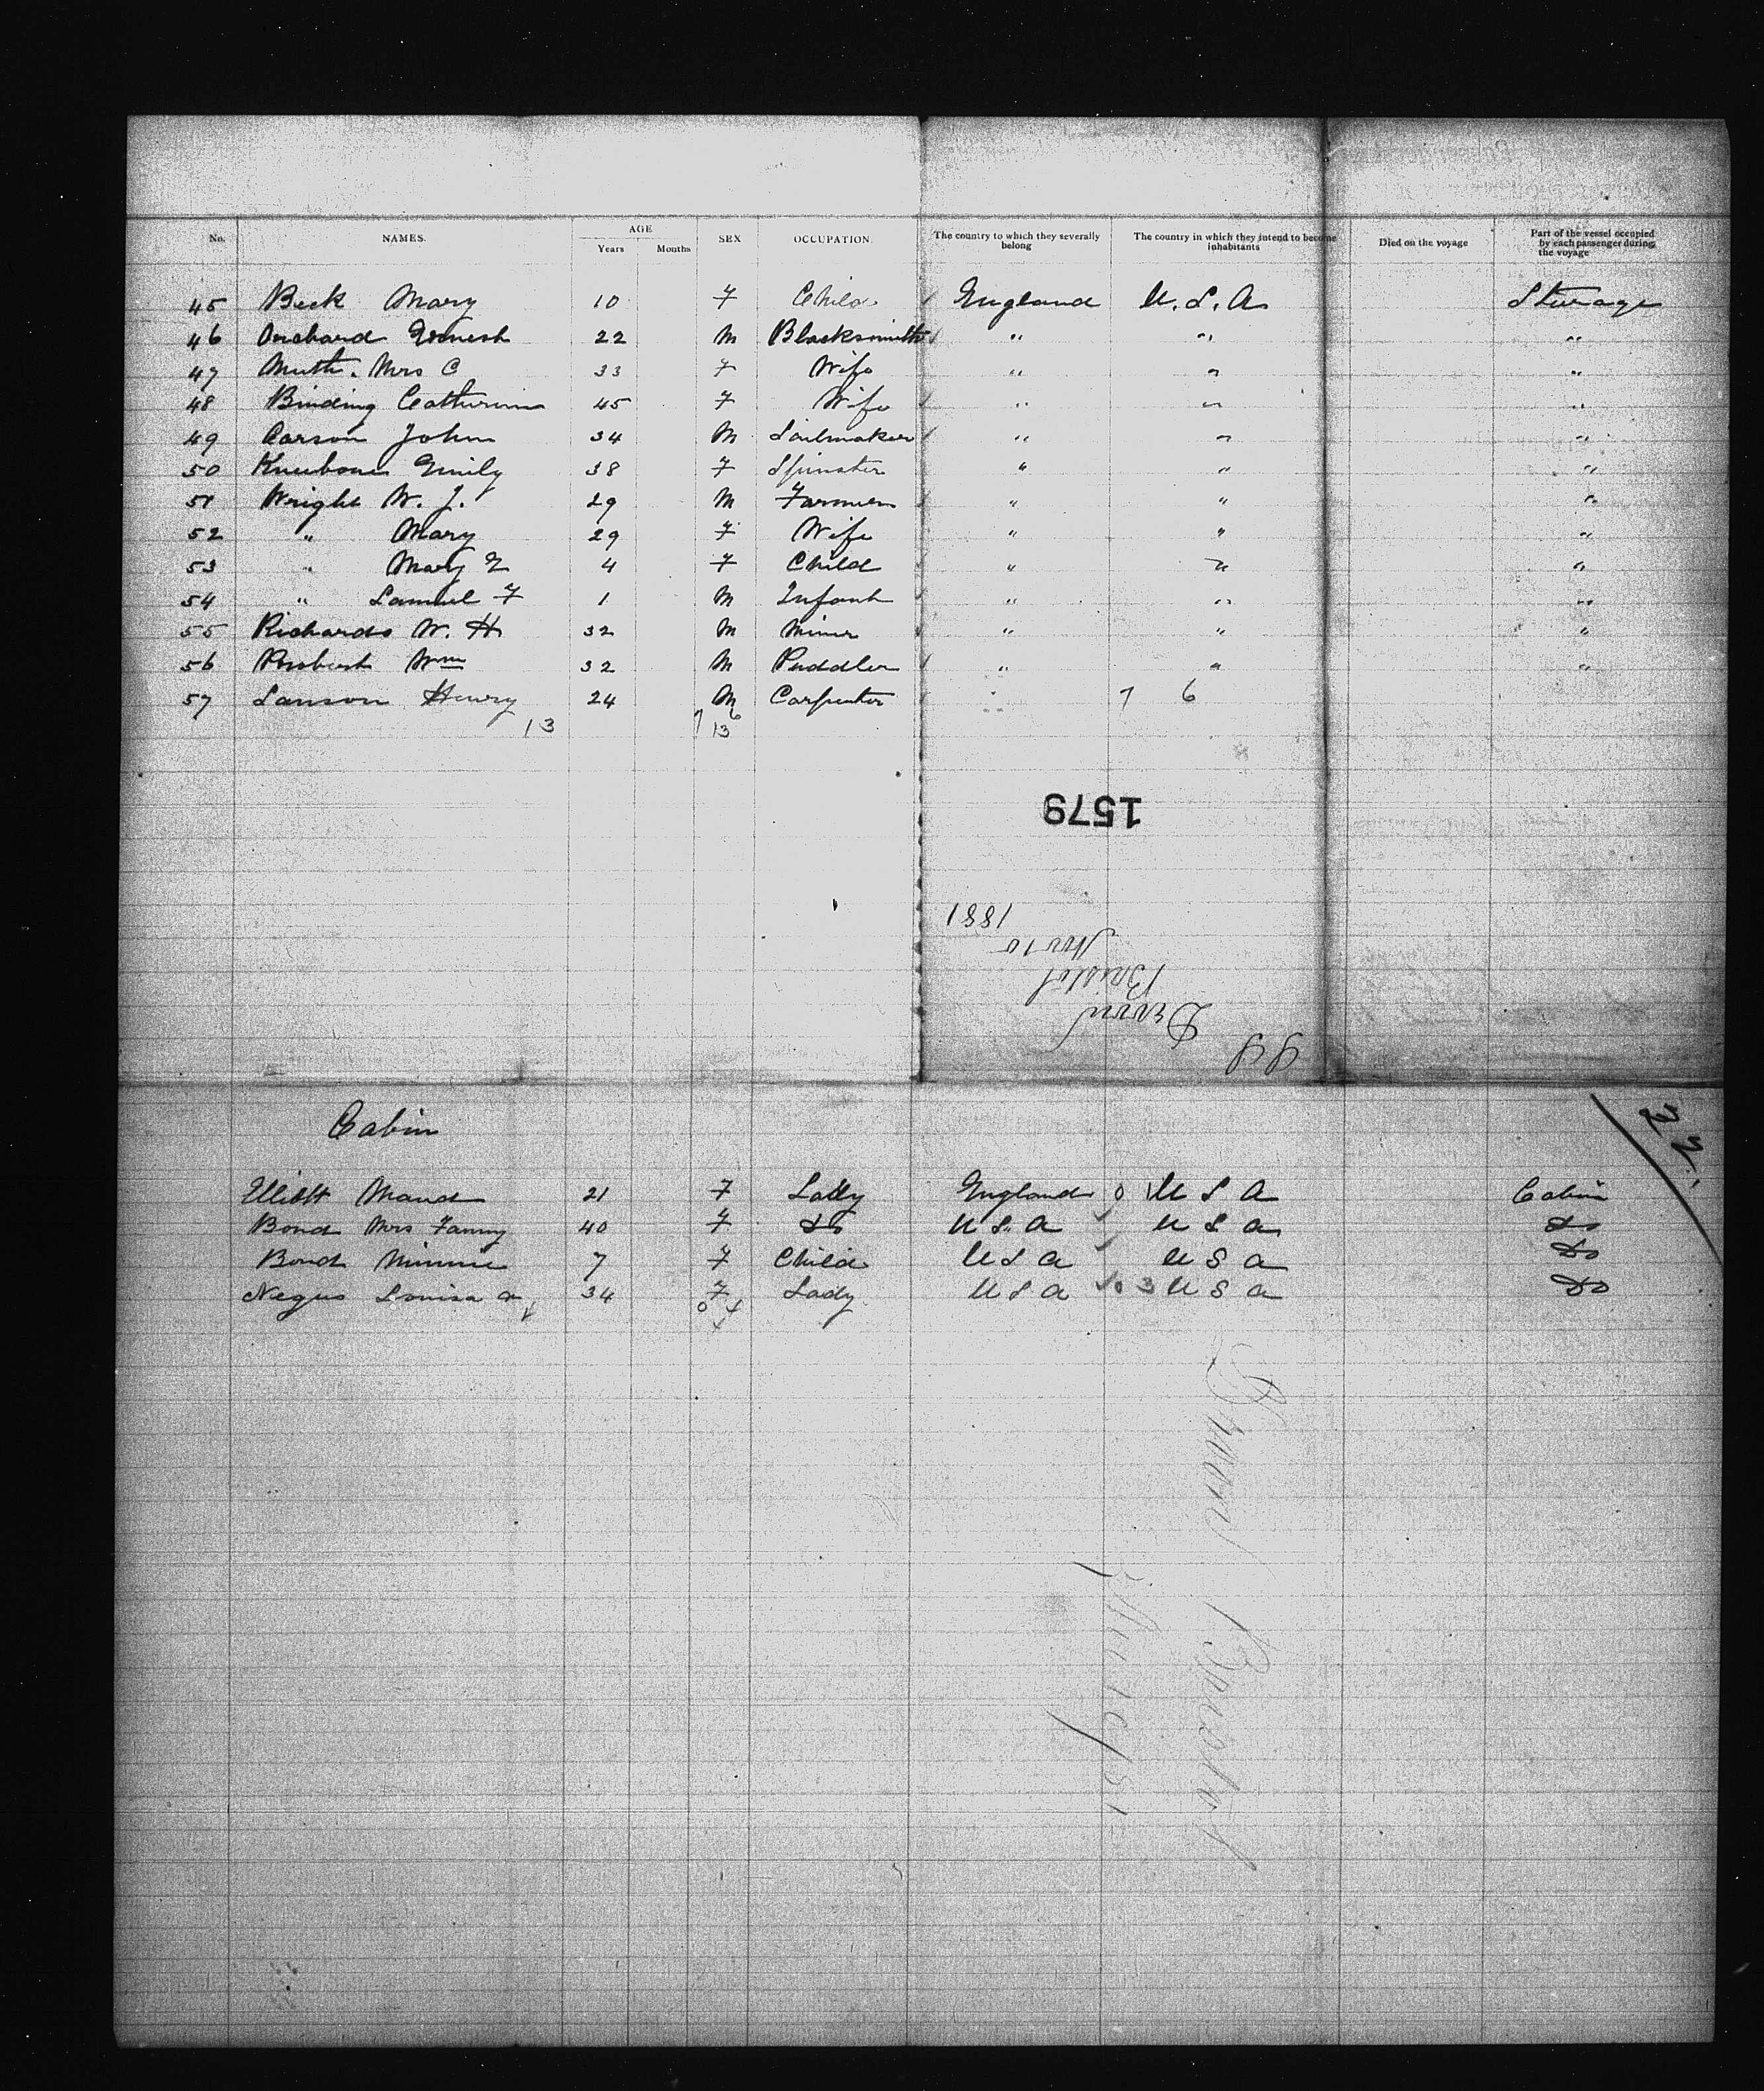 No. NAMES. AGE Years Months SEX OCCUPATION. The country to which they severally belong The country in which they intend to become inhabitants Died on the voyage Part of the vessel occupied by each passenger during the voyage
45 Beck Mary 10 F Child England U.S.A Steerage
46 Orchard Ernest 22 M Blacksmith " " "
47 Muth. Mrs C 33 F Wife " " "
48 Binding Catherine 45 F Wife " " "
49 Carson John 34 M Sailmaker " " "
50 Kneebone Emily 38 F Spinster " " "
51 Wright W. J. 29 M Farmer " " "
52 " Mary 29 F Wife " " "
53 " Mary E 4 F Child " " "
54 " Samuel F 1 M Infant " " "
55 Richards W. H 32 M Miner " " "
56 Probert Wm 32 M Puddler " " "
57 Lanson Henry 24 M Carpenter " 7 6
13 7 6
13
1579
Devon
Bristol
Nov 10
1881
Cabin
22
Elliott Maud 21 F Lady England 0 1 U S A Cabin
Bond Mrs Fanny 40 F Do U.S.A U S A Do
Bond Minnie 7 F Child U S A U S A Do
Negus Louisa A 34 F Lady U S A 0 3 U S A Do
4 0 4
4
Devon Bristol